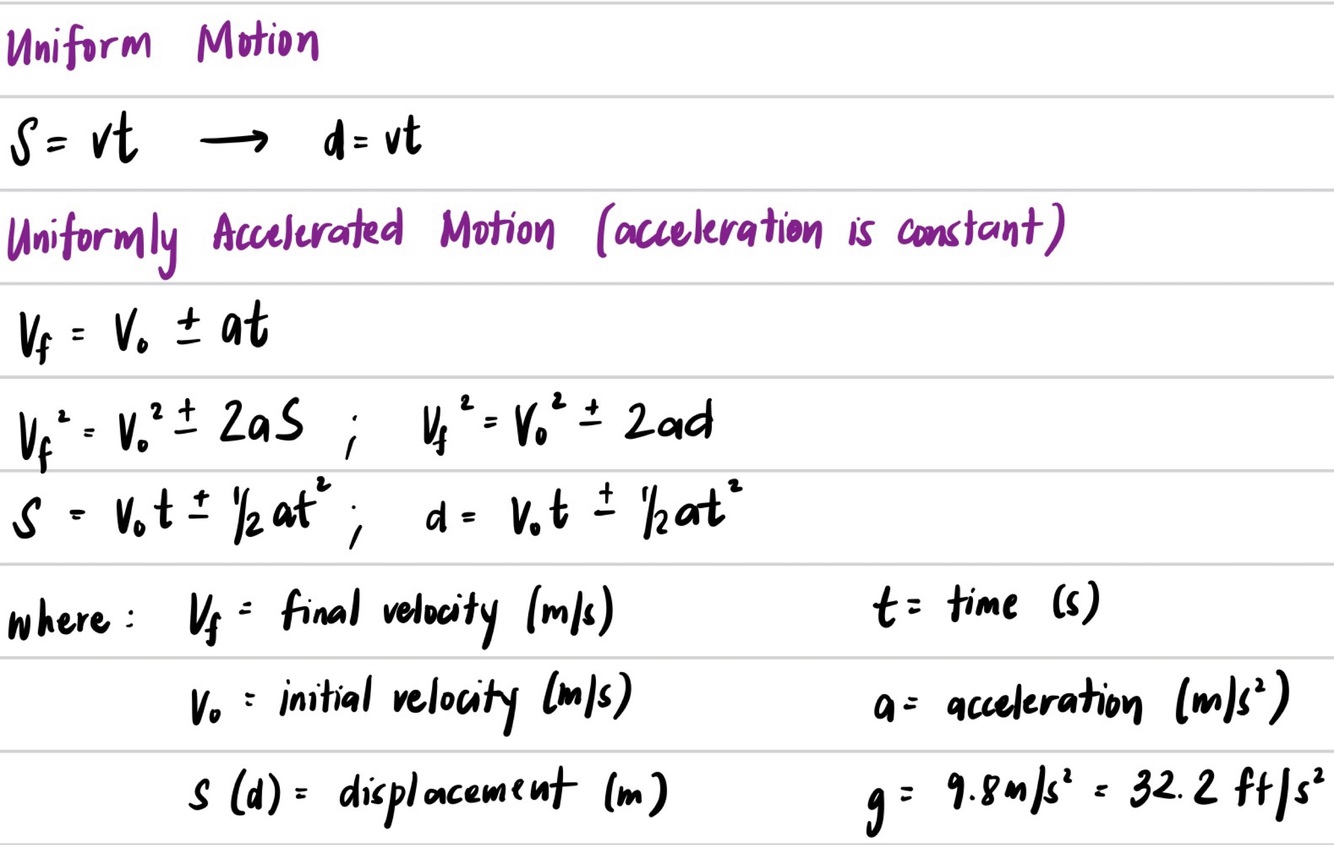 Uniform Motion
S = vt ⟶ d = vt
Uniformly Accelerated Motion (acceleration is constant)
V_f = V₀ ± at
V_f² = V₀² ± 2aS ; V_f² = V₀² ± 2ad
S = V₀t ± 1/2 at² ; d = V₀t ± 1/2 at²
where : V_f = final velocity (m/s) t = time (s)
V₀ = initial velocity (m/s) a = acceleration (m/s²)
S (d) = displacement (m) g = 9.8m/s² = 32.2 ft/s²